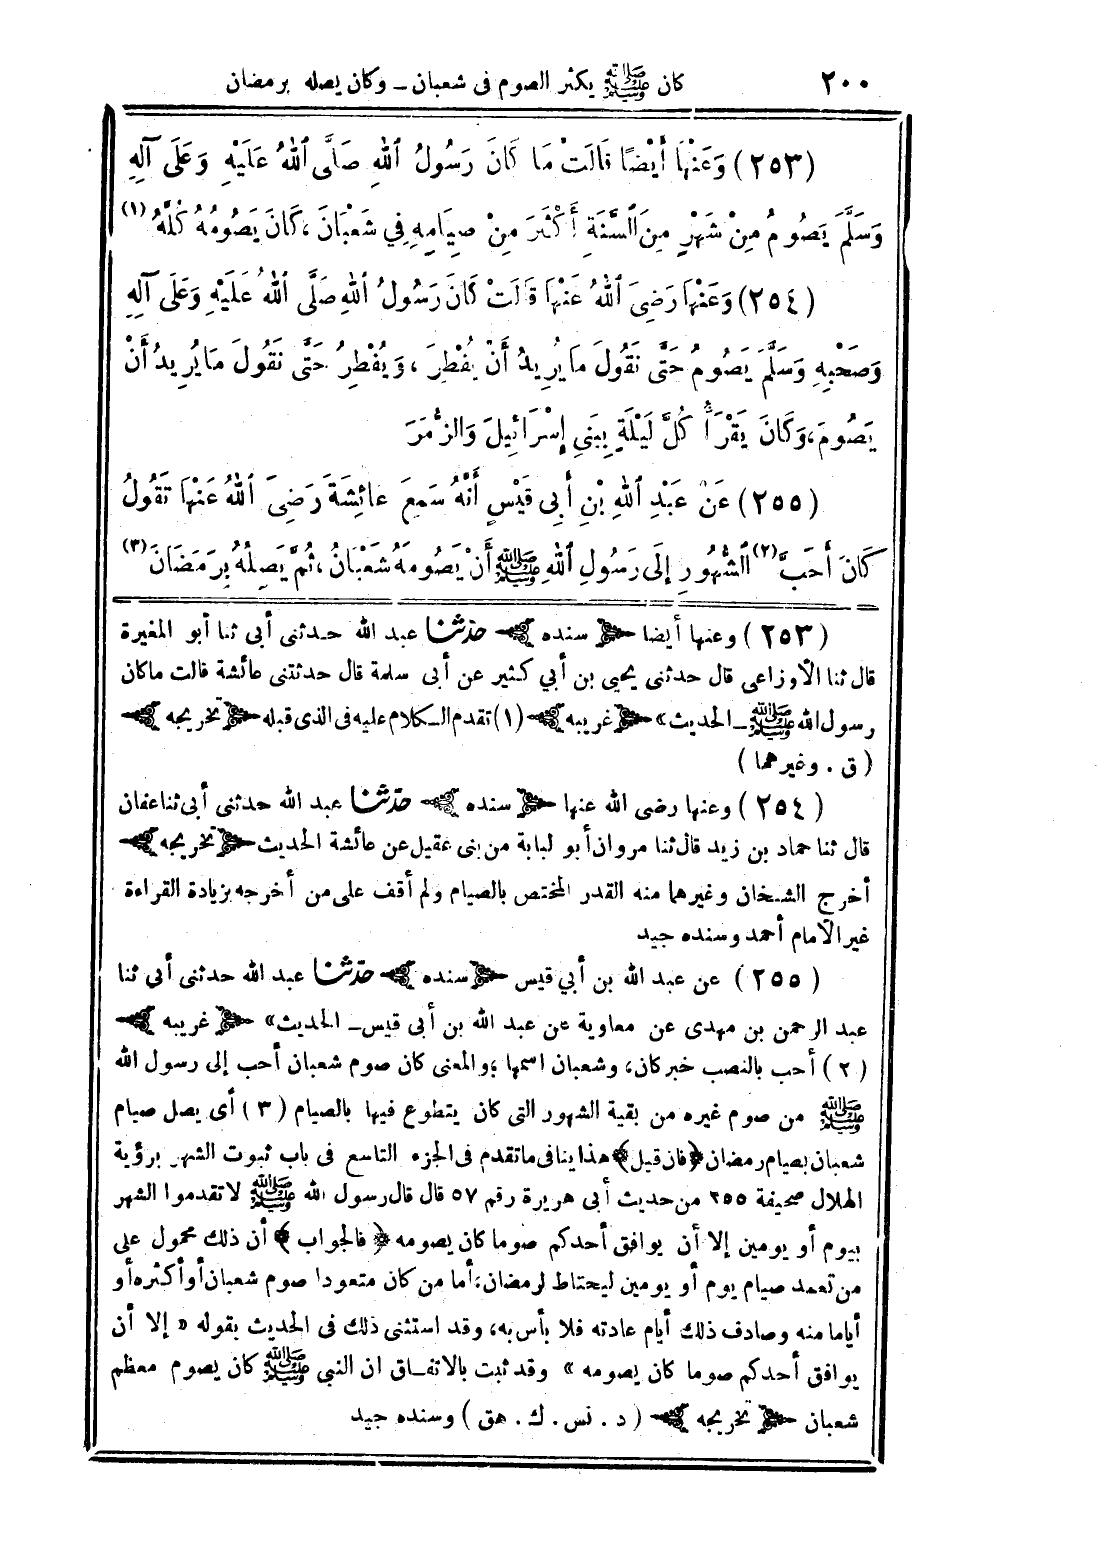 ٢٠٠ كان ﷺ يكثر الصوم فى شعبان ــ وكان يصله برمضان
(٢٥٣) وَعَنْهَا أَيْضًا قَالَتْ مَا كَانَ رَسُولُ اللهِ صَلَّى اللهُ عَلَيْهِ وَعَلَى آلِهِ
وَسَلَّمَ يَصُومُ مِنْ شَهْرٍ مِنَ السَّنَةِ أَكْثَرَ مِنْ صِيَامِهِ فِي شَعْبَانَ، كَانَ يَصُومُهُ كُلَّهُ (١)
(٢٥٤) وَعَنْهَا رَضِىَ اللهُ عَنْهَا قَالَتْ كَانَ رَسُولُ اللهِ صَلَّى اللهُ عَلَيْهِ وَعَلَى آلِهِ
وَصَحْبِهِ وَسَلَّمَ يَصُومُ حَتَّى نَقُولَ مَا يُرِيدُ أَنْ يُفْطِرَ، وَيُفْطِرُ حَتَّى نَقُولَ مَا يُرِيدُ أَنْ
يَصُومَ، وَكَانَ يَقْرَأُ كُلَّ لَيْلَةٍ بِبَنِى إِسْرَائِيلَ وَالزُّمَرَ
(٢٥٥) عَنْ عَبْدِ اللهِ بْنِ أَبِى قَيْسٍ أَنَّهُ سَمِعَ عَائِشَةَ رَضِىَ اللهُ عَنْهَا تَقُولُ
كَانَ أَحَبَّ (٢) الشُّهُورِ إِلَى رَسُولِ اللهِ ﷺ أَنْ يَصُومَهُ شَعْبَانُ، ثُمَّ يَصِلُهُ بِرَمَضَانَ (٣)
(٢٥٣) وعنها أيضا ﴿ سنده ﴾ حدّثنا عبد الله حدثنى أبى ثنا أبو المغيرة
قال ثنا الأوزاعى قال حدثنى يحيى بن أبي كثير عن أبى سلمة قال حدثتنى عائشة قالت ما كان
رسول الله ﷺ ــ الحديث» ﴿ غريبه ﴾ (١) تقدم الـكلام عليه فى الذى قبله ﴿ تخريجه ﴾
( ق . وغيرهما )
(٢٥٤) وعنها رضى الله عنها ﴿ سنده ﴾ حدّثنا عبد الله حدثنى أبى ثنا عفان
قال ثنا حماد بن زيد قال ثنا مروان أبو لبابة من بنى عقيل عن عائشة الحديث ﴿ تخريجه ﴾
أخرج الشيخان وغيرهما منه القدر المختص بالصيام ولم أقف على من أخرجه بزيادة القراءة
غير الامام أحمد وسنده جيد
(٢٥٥) عن عبد الله بن أبي قيس ﴿ سنده ﴾ حدّثنا عبد الله حدثنى أبى ثنا
عبد الرحمن بن مهدى عن معاوية عن عبد الله بن أبى قيس ــ الحديث» ﴿ غريبه ﴾
(٢) أحب بالنصب خبر كان، وشعبان اسمها ؛ والمعنى كان صوم شعبان أحب إلى رسول الله
ﷺ من صوم غيره من بقية الشهور التى كان يتطوع فيها بالصيام (٣) أى يصل صيام
شعبان بصيام رمضان ﴿ فان قيل ﴾ هذا ينافى ما تقدم فى الجزء التاسع فى باب ثبوت الشهر برؤية
الهلال صحيفة ٢٥٥ من حديث أبى هريرة رقم ٥٧ قال قال رسول الله ﷺ لا تقدموا الشهر
بيوم أو يومين إلا أن يوافق أحدكم صوما كان يصومه ﴿ فالجواب ﴾ أن ذلك محمول على
من تعمد صيام يوم أو يومين ليحتاط لرمضان، أما من كان متعودا صوم شعبان أو أكثره أو
أياما منه وصادف ذلك أيام عادته فلا بأس به، وقد استثنى ذلك فى الحديث بقوله « إلا أن
يوافق أحدكم صوما كان يصومه » وقد ثبت بالاتفـاق ان النبى ﷺ كان يصوم معظم
شعبان ﴿ تخريجه ﴾ ( د . نس . ك . هق ) وسنده جيد